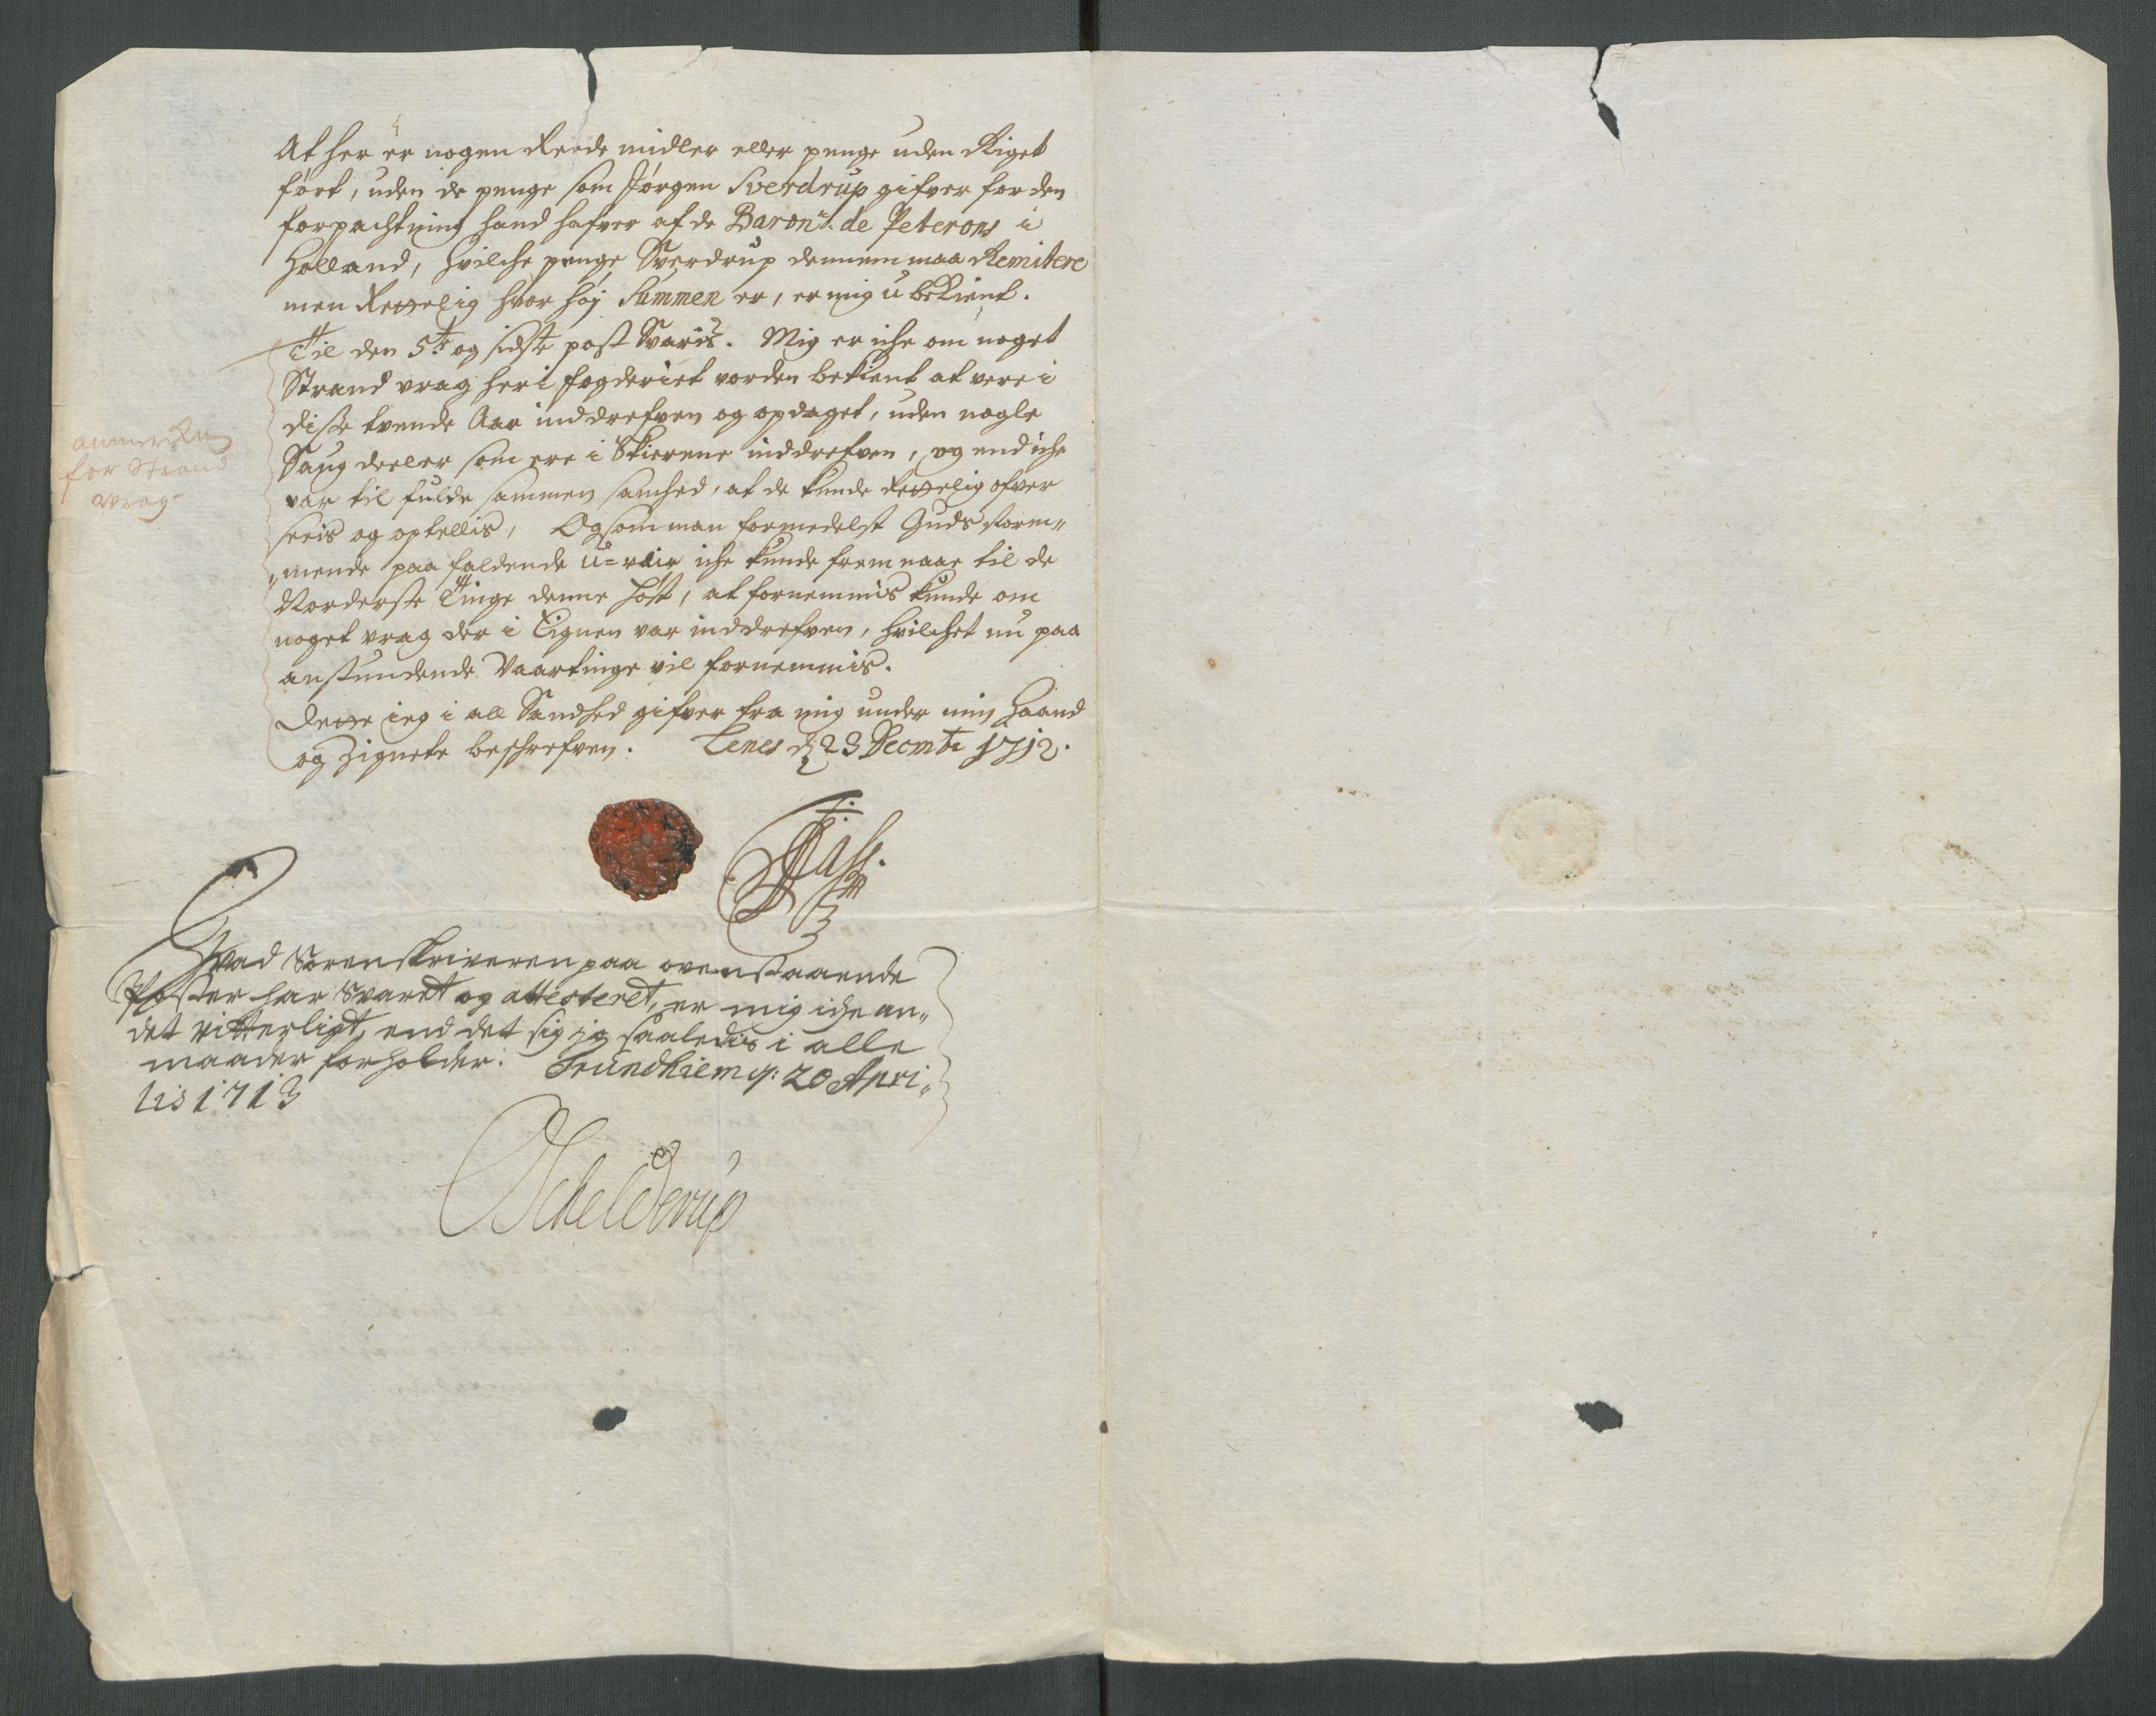 At her er nogen Rede midler eller penge uden Riget
fört, uden de penge som Jörgen Sverdrup gifver for den
forpachtning hand hafver af de Baron de Peterons i
Holland, hvilche penge Sverdrup dennem maa Remitere
men Rettelig hvor höj Summen er, er mig ubekient.
Til den 5te og sidste post Svaris. Mig er iche om noget
Strand vrag her i fogderiet vorden bekient at vere i
disse tvende Aar inddrefven og opdaget, uden nogle
Saug deeler som ere i Skierene inddrefven, og end iche
var til fulde sammen samhed, at de kunde Rettelig ofver
seeis og optellis, Og som man formedelst Guds storm„
„mende paa faldende U=veir iche kunde frem naae til de
Norderste Tinge denne höst, at fornemmis kunde om
noget vrag der i Eignen var inddrefven, hvilchet nu paa
anstundende Vaartinge vil fornemmis.
Dette ieg i all Sandhed gifver fra mig under min Haand
og Zignete beschrefven. Tenes d 23 Decmb 1712.
anmerckning
for Strand
wrag
Hvad Sorenskriveren paa ovenstaaende
Poster har Svaret og attesteret, er mig iche an„
det vitterligt, end det sig jo saaledis i alle
maader forholder. Trundhiem d: 20 Apri„
lis 1713
Schelderup